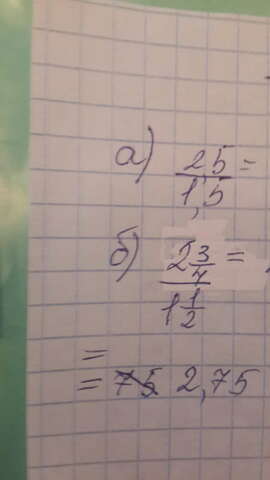 а) 2,5
1,5 =
б) 2 3/4 =
1 1/2
=
= 75 2,75